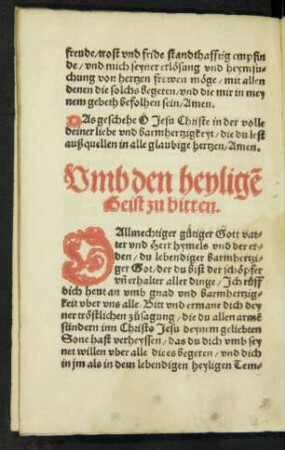 freude/trost vnd fride standthafftig empfin
de/vnd mich seyner erlösung vnd heymsu-
chung von hertzen frewen möge/mit allen
denen die solchs begeren/vnd die mir in mey
nem gebeth befolhen sein/Amen.
DAs geschehe O Jesu Christe in der volle
deiner liebe vnd barmhertzigkeyt/die du lest
außquellen in alle glaubige hertzen/Amen.
Vmb den heyligē
Geist zu bitten.
O Allmechtiger gütiger Gott vat-
ter vnd Herr hymels vnd der er-
den/du lebendiger barmhertzi-
ger Got/der du bist der schöpfer
vñ erhalter aller dinge/Ich rüff
dich heut an vmb gnad vnd barmhertzig-
keit vber vns alle. Bitt vnd ermane dich dey
ner tröstlichen zůsagung/die du allen armē
sündern inn Christo Jesu deynem geliebten
Sone hast verheyssen/das du dich vmb sey
net willen vber alle die es begeren/vnd dich
in jm als in dem lebendigen heyligen Tem-